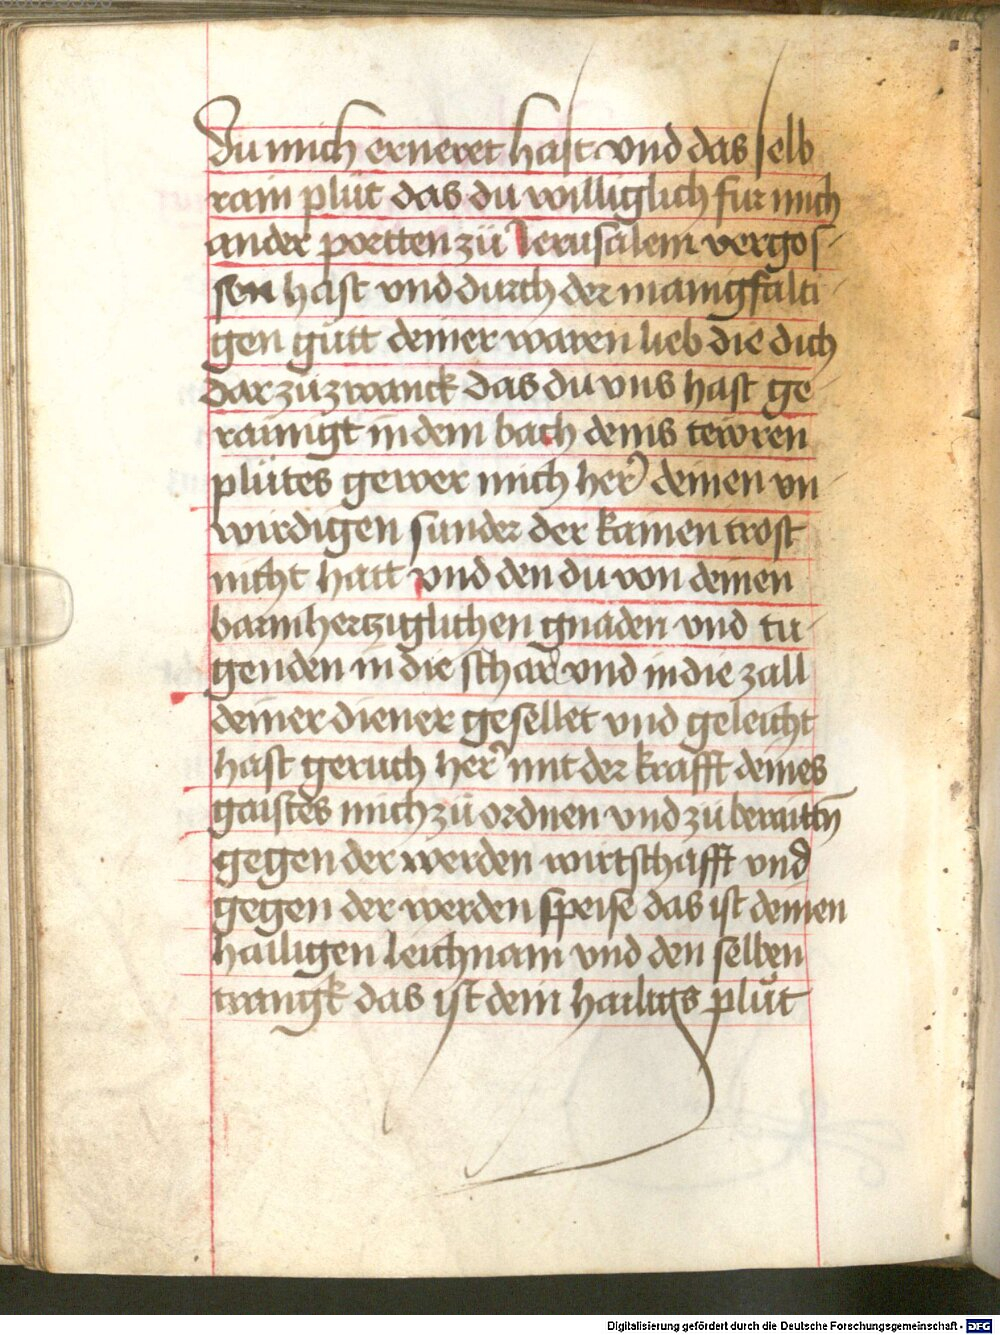 du mich erneret hast vnd das selb
rain plüt das du williglich fur mich
an der portten zü Ierusalem vergos-
sen hast vnd durch der manigfalti-
gen gütt deiner waren lieb die dich
dar zu zwanck das du vns hast ge
rainigt in dem bach deins tewren
plütes gewer mich her deinen vn
wirdigen sunder der kainen trost
nicht hatt vnd den du von deinen
barmhertziglichen gnaden vnd tu-
genden in die schar vnd in die zall
deiner diener gesellet vnd geleicht
hast geruch her mit der krafft deines
gaistes mich zü ordnen vnd zü beraittn̄
gegen der werden wirtschafft vnd
gegen der werden speise das ist deinen
hailigen leichnam vnd den selben
trangk das ist dein hailigs plůt
Digitalisierung gefördert durch die Deutsche Forschungsgemeinschaft - DFG